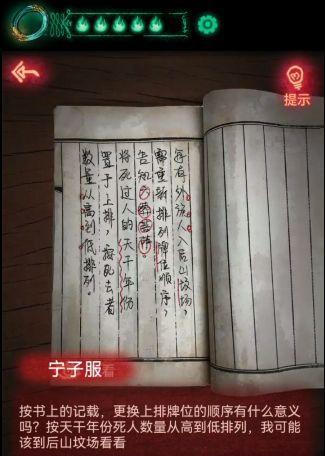 提示
每有外族人入后山坟场,
需重新排列牌位顺序,
告知
将死过人的天干年份
置于上排,按死去者
数量从高到低排列。
宁子服
按书上的记载,更换上排牌位的顺序有什么意义
吗?按天干年份死人数量从高到低排列,我可能
该到后山坟场看看